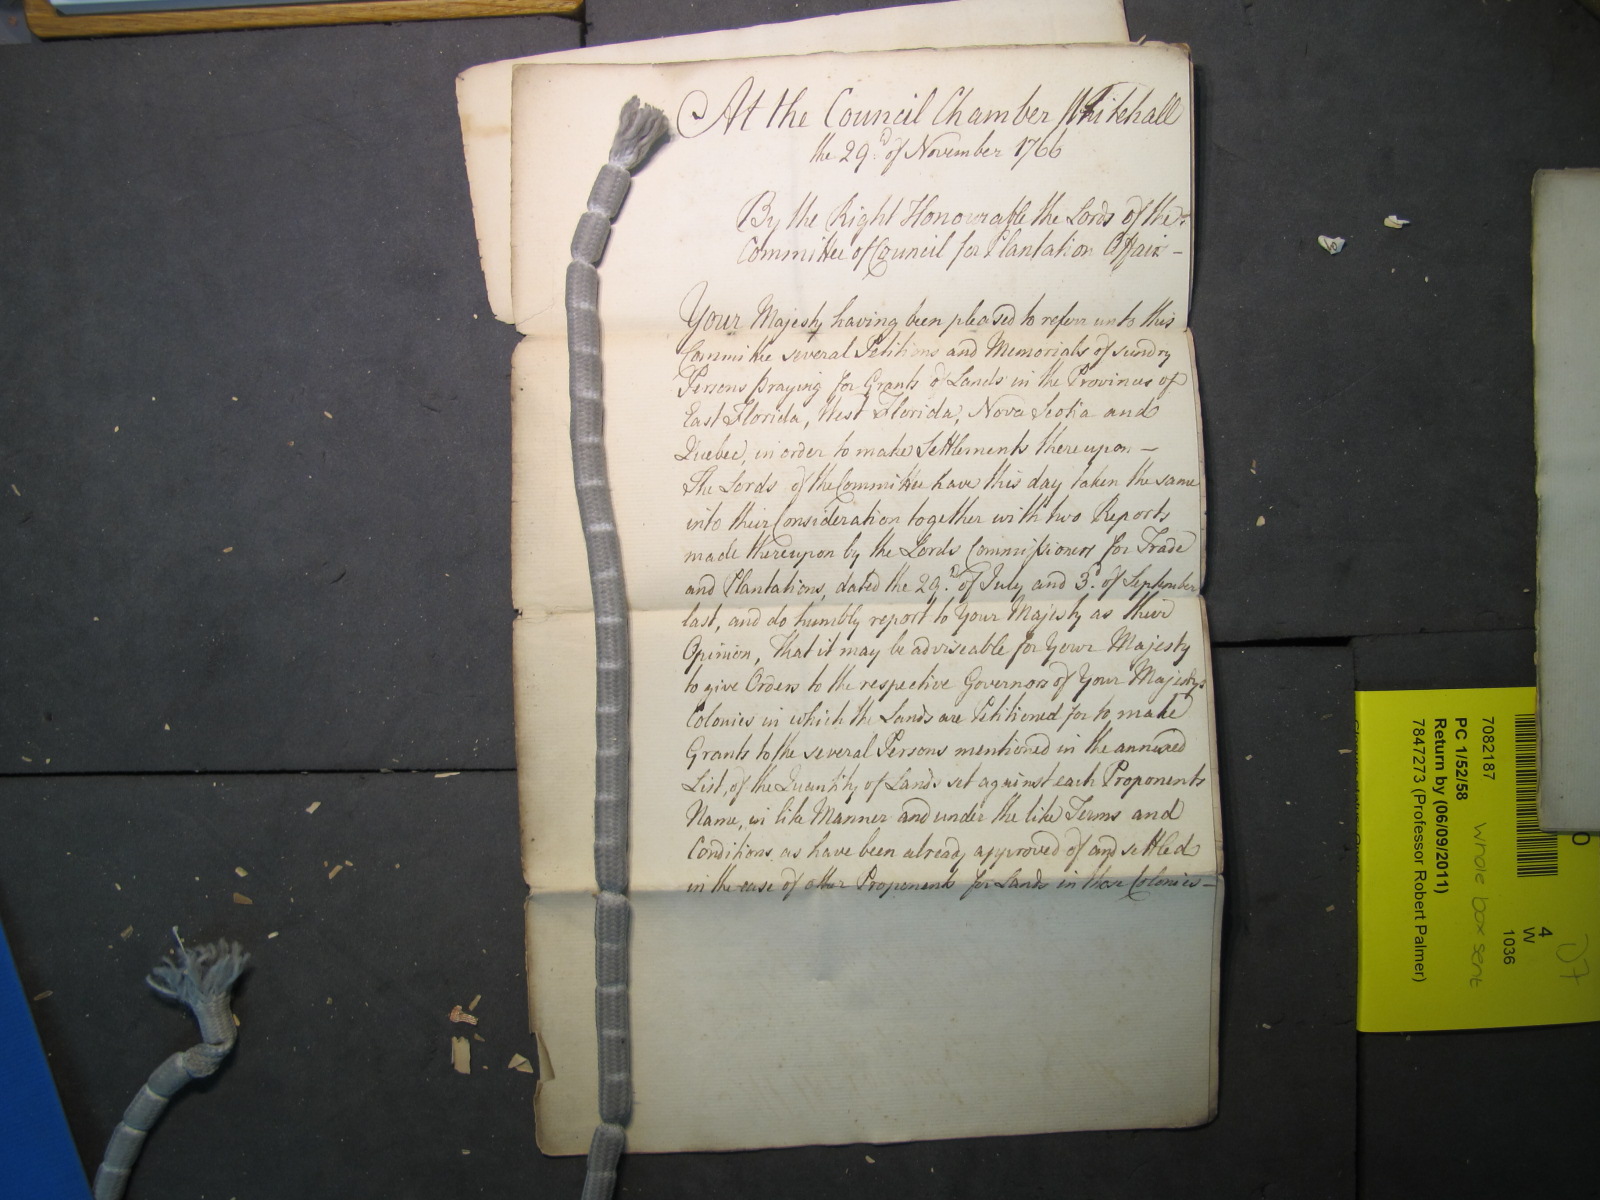 At the Council Chamber Whitehall
the 29.d of November 1766
By the Right Honourable the Lords of the
Committee of Council for Plantation Affairs -
Your Majesty having been pleased to referr unto this
Committee several Petitions and Memorials of sundry
Persons praying for Grants of Lands in the Provinces of
East Florida, West Florida, Nova Scotia and
Quebec, in order to make Settlements thereupon -
The Lords of the Committee have this day taken the same
into their Consideration together with two Reports
made thereupon by the Lords Commissioners for Trade
and Plantations, dated the 29.d of July and 3.d of September
last, and do humbly report to Your Majesty as their
Opinion, That it may be adviseable for Your Majesty
to give Orders to the respective Governors of Your Majestys
Colonies in which the Lands are Petitioned for to make
Grants to the several Persons mentioned in the annexed
List, of the Quantity of Lands set against each Proponents
Name, in like Manner and under the like Terms and
Conditions, as have been already approved of and settled
in the case of other Proponents for Lands in those Colonies -
4
W
1036
7082187
whole box sent
PC 1/52/58
Return by (06/09/2011)
7847273 (Professor Robert Palmer)